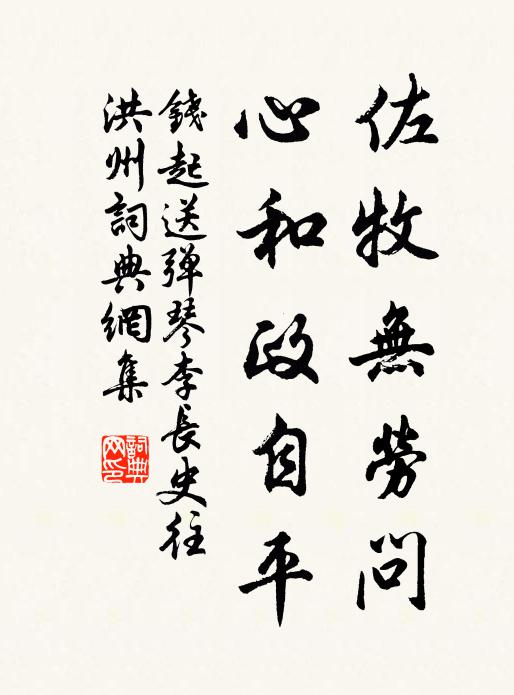 佐牧無勞問
心和政自平
錢起送弹琴李長史往
洪州詞典網集
詞典
网印